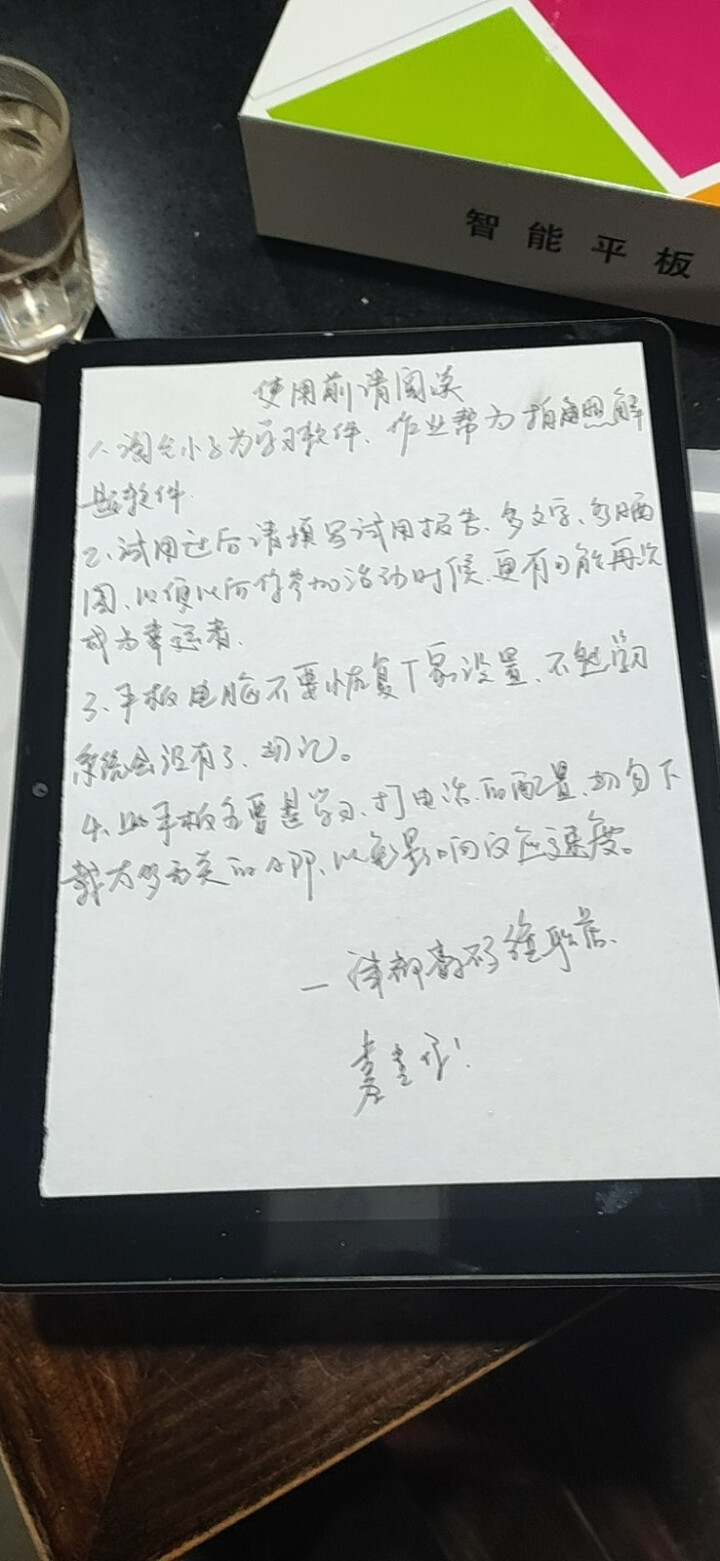 智能平板
使用前请阅读
1、淘气小子为学习软件、作业帮为拍照解
题软件.
2、试用过后请填写试用报告、多文字、多晒
图、以便以后你参加活动时候、更有可能再次
成为幸运者.
3、平板电脑不要恢复厂家设置、不然学习
系统会没有了、切记。
4、此平板主要是学习、打电话、的配置、切勿下
载太多
类的APP、以免影响反应速度。
数码连联店.